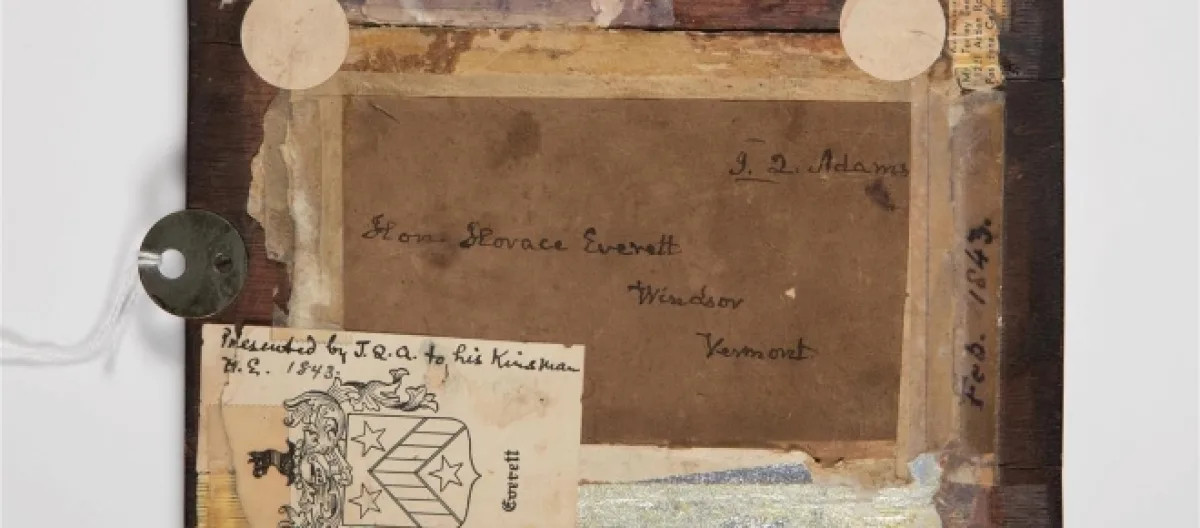 J. Q. Adams
Hon. Horace Everett
Windsor
Vermont
Feb. 1843.
Presented by J.Q.A. to his Kinsman
H.E. 1843.
Everett